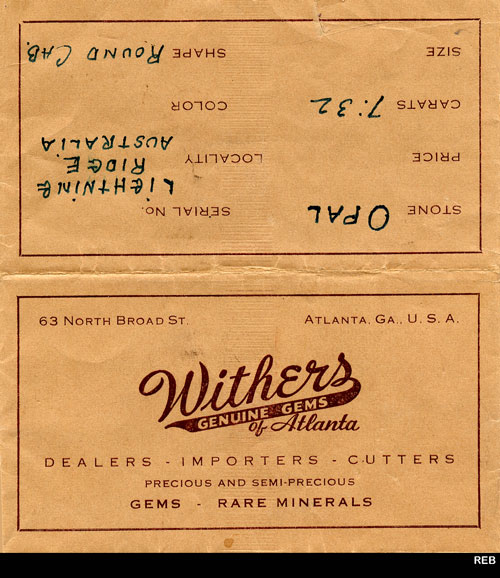 STONE OPAL SERIAL No.
LIGHTNING
PRICE LOCALITY RIDGE
AUSTRALIA
CARATS 7:32 COLOR
SIZE SHAPE ROUND CAB.
63 NORTH BROAD ST. ATLANTA, GA., U. S. A.
Withers
GENUINE GEMS
of Atlanta
DEALERS - IMPORTERS - CUTTERS
PRECIOUS AND SEMI-PRECIOUS
GEMS - RARE MINERALS
REB